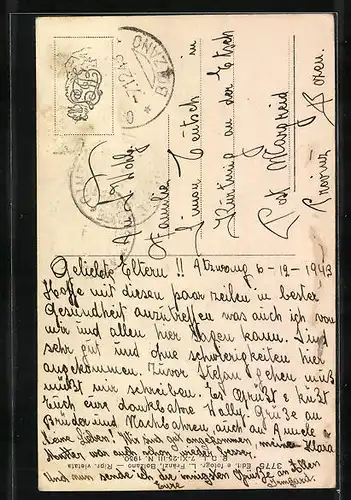 BOLZANO
7.12.43
Familie
Simon Teutsch in
Kurtinig an der Etsch
Post Margreid
Provinz – Bozen.
Geliebte Eltern!! Atzwang 6-12-1943
Hoffe mit diesen paar zeilen in bester
Gesundheit anzutreffen was auch ich von
mir und allen hier sagen kann. Sind
sehr gut und ohne schwierigkeiten hier
angekommen. Zuvor Stefan gehen muß
müßt mir schreiben. Es Grüßt & küßt
Euch eure dankbahre Wally. Grüße an
Brüder und Nachbahren, auch an
Liebe! Wir sind gut angekommen, meine Klara
war auch schon wieder besser.
Und nun sende ich die innigsten Grüße an Allen
Eure Irmgard.
3775 Ediz. fotogr. L. Franzl, Bolzano — Ripr. vietata